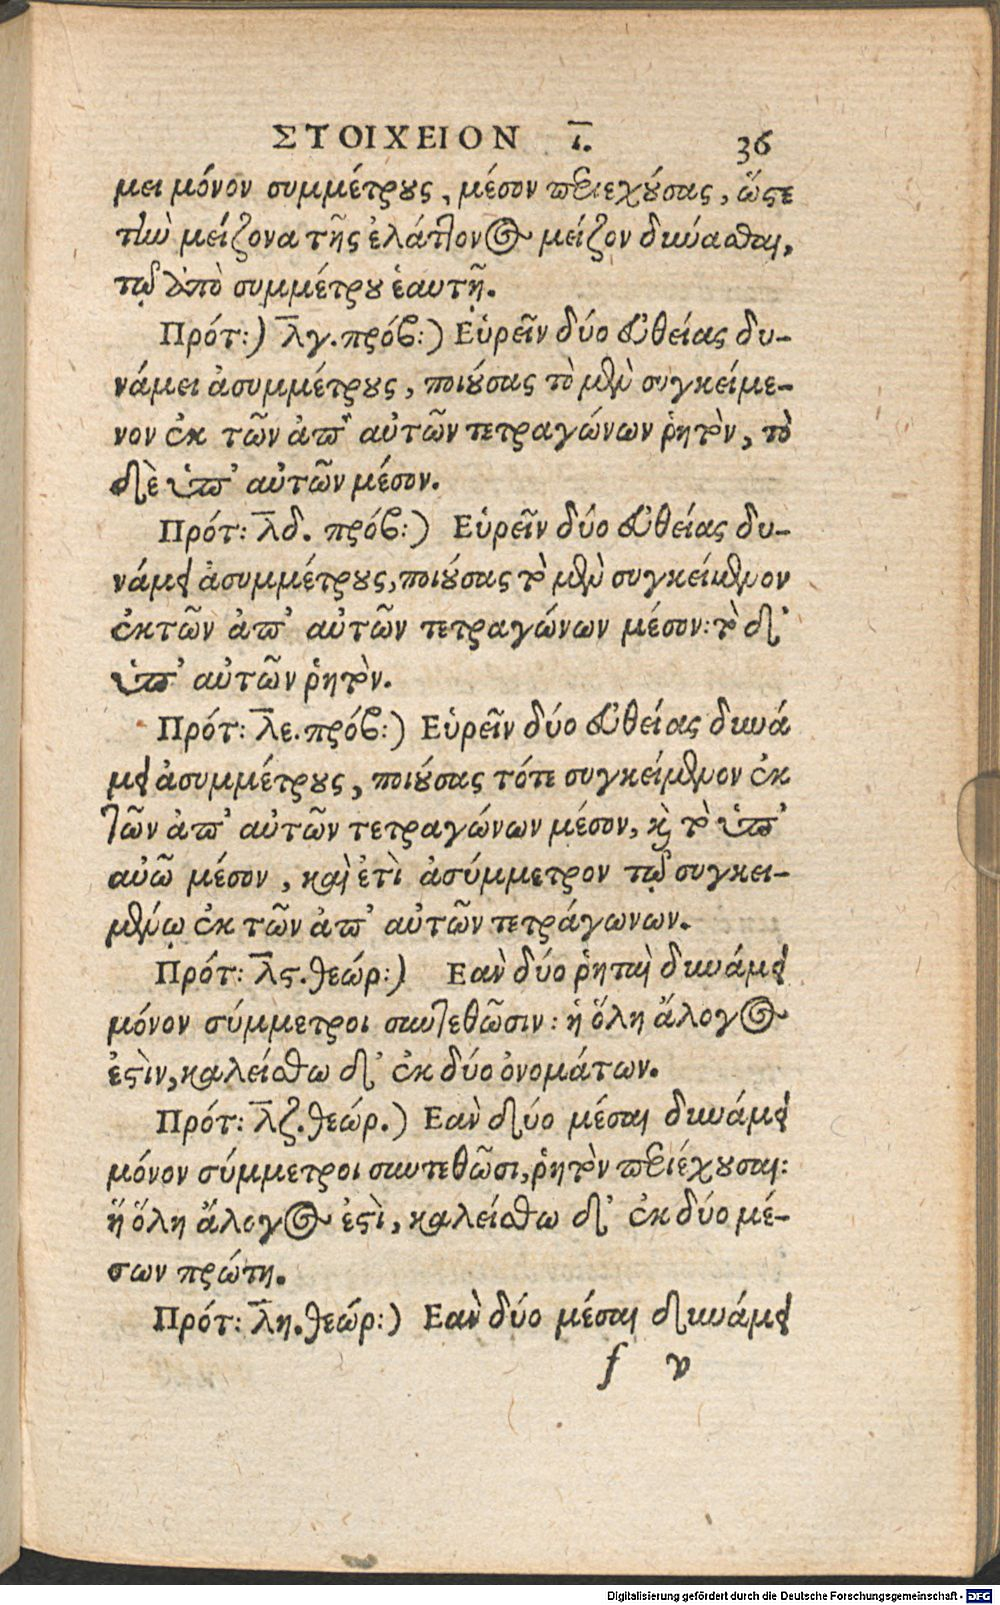 ΣΤΟΙΧΕΙΟΝ ι. 36
μει μόνον συμμέτρους, μέσον περιεχούσας, ὥστε
τὴν μείζονα τῆς ἐλάττονος μεῖζον δύνασθαι,
τῷ ἀπὸ συμμέτρου ἑαυτῇ.
Πρότ:) λγ. πρόβ:) Εὑρεῖν δύο εὐθείας δυ-
νάμει ἀσυμμέτρους, ποιούσας τὸ μὲν συγκείμε-
νον ἐκ τῶν ἀπ' αὐτῶν τετραγώνων ῥητὸν, τὸ
δὲ ὑπ' αὐτῶν μέσον.
Πρότ: λδ. πρόβ:) Εὑρεῖν δύο εὐθείας δυ-
νάμει ἀσυμμέτρους, ποιούσας τὸ μὲν συγκείμενον
ἐκ τῶν ἀπ' αὐτῶν τετραγώνων μέσον: τὸ δ'
ὑπ' αὐτῶν ῥητὸν.
Πρότ: λε. πρόβ:) Εὑρεῖν δύο εὐθείας δυνά
μει ἀσυμμέτρους, ποιούσας τότε συγκείμενον ἐκ
τῶν ἀπ' αὐτῶν τετραγώνων μέσον, καὶ τὸ ὑπ'
αὐῶ μέσον, καὶ ἐτὶ ἀσύμμετρον τῷ συγκει-
μένῳ ἐκ τῶν ἀπ' αὐτῶν τετράγωνων.
Πρότ: λς. θεώρ:) Εαν δύο ῥηταὶ δυνάμει
μόνον σύμμετροι συντεθῶσιν: ἡ ὅλη ἄλογος
ἐστὶν, καλείσθω δ' ἐκ δύο ὀνομάτων.
Πρότ: λζ. θεώρ.) Εαν δύο μέσαι δυνάμει
μόνον σύμμετροι συντεθῶσι, ῥητὸν περιέχουσαι:
ἥ ὅλη ἄλογος ἐστὶ, καλείσθω δ' ἐκ δύο μέ-
σων πρώτη.
Πρότ: λη. θεώρ:) Εαν δύο μέσαι δυνάμει
f v
Digitalisierung gefördert durch die Deutsche Forschungsgemeinschaft - DFG